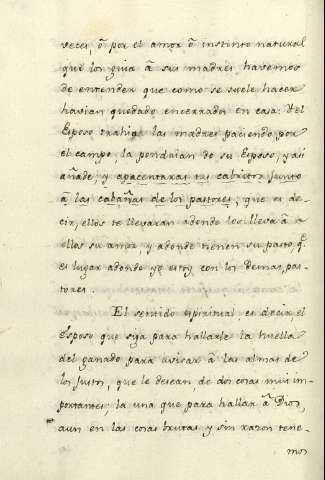 veces, ò por el amor ò instinto natural
que los guia à sus madres havemos
de entender que como se suele hacer
havian quedado encerrados en casa. Y el
Esposo trahiga las madres paciendo por
el campo, la pondrian de su Esposo, y asi
añade, y apacentaras tus cabritos junto
à las cabañas de los pastores, que es de-
cir, ellos te llevaran adonde los lleva à
ellos su amor y adonde tienen su pasto q.e
es lugar adonde yo estoy con los Demas pas-
tores.
El sentido espiritual es decir el
Esposo que siga para hallarle la huella
del ganado para avisar à las almas de
los justos, que le desean, de dos cosas mui im-
portantes: la una que para hallar à Dios,
aun en las cosas brutas y sin razon tene-
mos